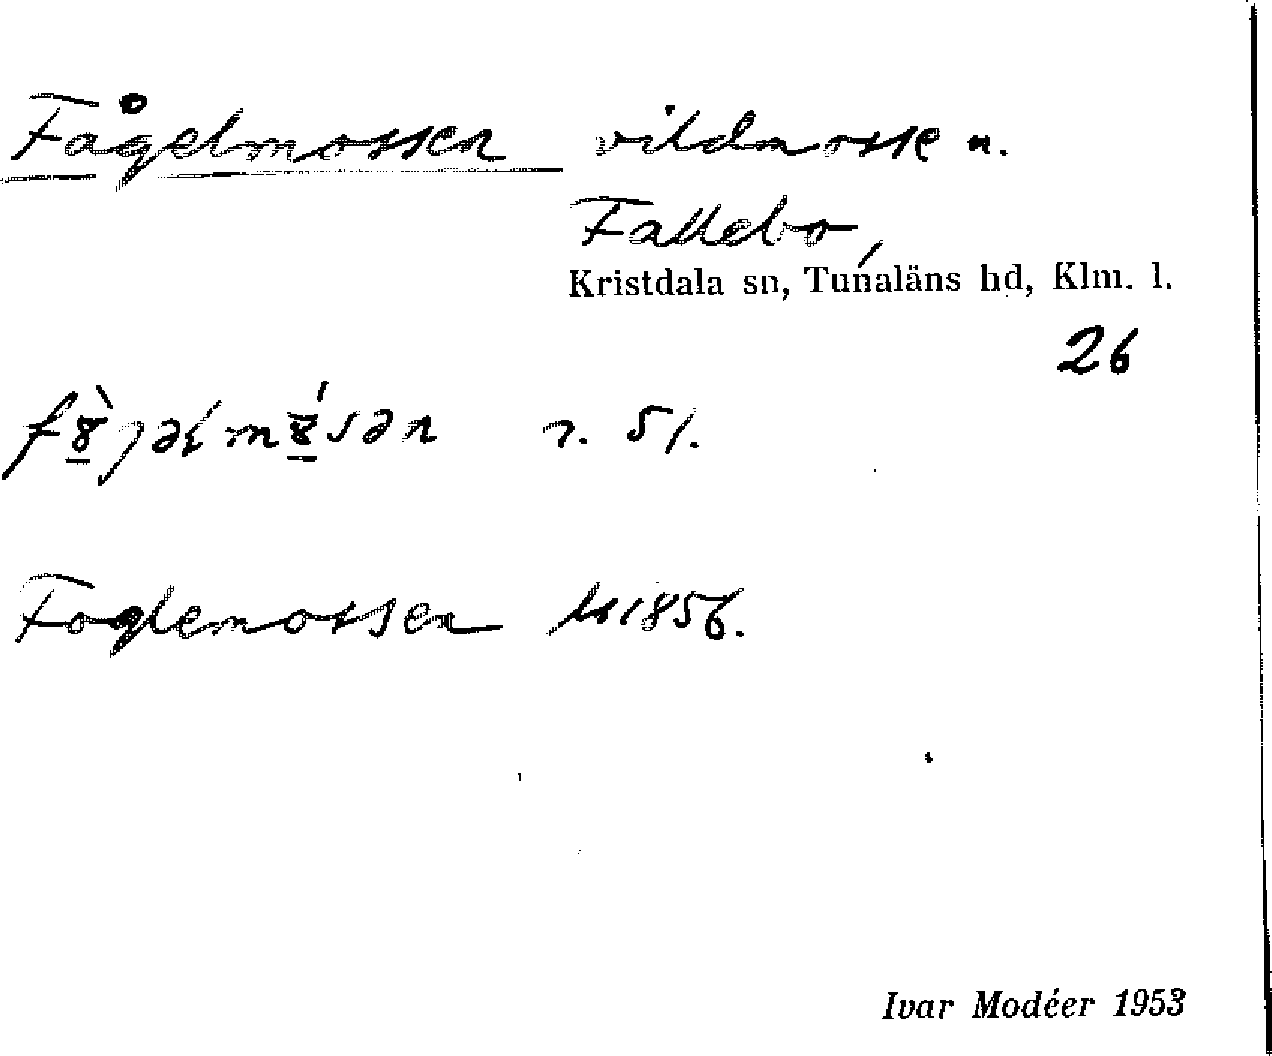 Fågelmossen vildmosse n.
Fallebo,
Kristdala sn, Tunaläns hd, Klm. l.
26
r. 51.
Foglemossen 1856.
Ivar Modéer 1953